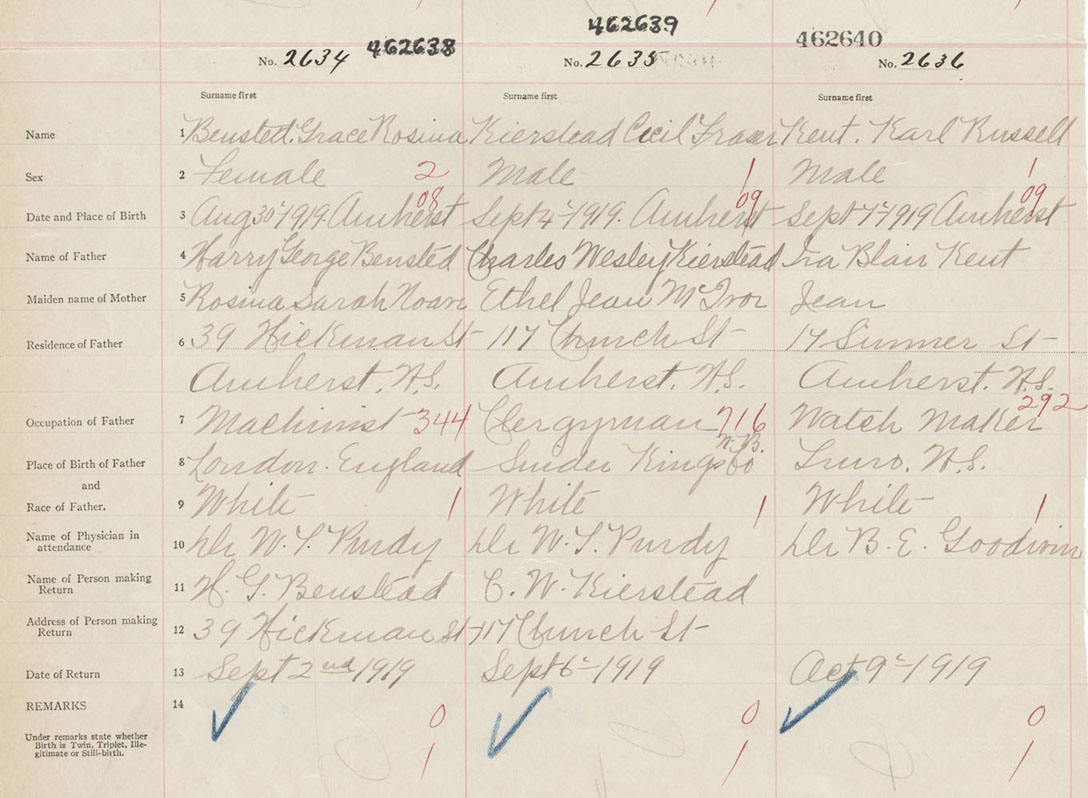 462638 462639 462640
No. 2634 No. 2635 No. 2636
Surname first Surname first Surname first
Name 1 Benstett. Grace Rosina Kierstead Cecil Fraser Kent. Karl Russell
Sex 2 Female 2 Male 1 Male 1
08 09 09
Date and Place of Birth 3 Aug 30 1919. Amherst Sept 4 1919. Amherst Sept 7 1919 Amherst
Name of Father 4 Harry George Bensted Charles Wesley Kierstead Ira Blair Kent
Maiden name of Mother 5 Rosina Sarah Ethel Jean McIvor Jean
Residence of Father 6 39 Hickman St 117 Church St 14 Sumner St
Amherst. N.S. Amherst. N.S. Amherst. N.S.
Occupation of Father 7 Machinist 344 Clergyman 716 Watch Maker 292
N.B.
Place of Birth of Father 8 London. England Kings Co Truro. N.S.
and
Race of Father. 9 White 1 White 1 White 1
Name of Physician in
attendance 10 Dr W. T. Purdy Dr W. T. Purdy Dr B. E. Goodwin
Name of Person making
Return 11 H. G. Benstead C. W. Kierstead
Address of Person making
Return 12 39 Hickman St 117 Church St
Date of Return 13 Sept 2nd 1919 Sept 6 1919 Oct 9 1919
REMARKS 14 0 0 0
Under remarks state whether
Birth is Twin, Triplet, Ille-
gitimate or Still-birth. 1 1 1